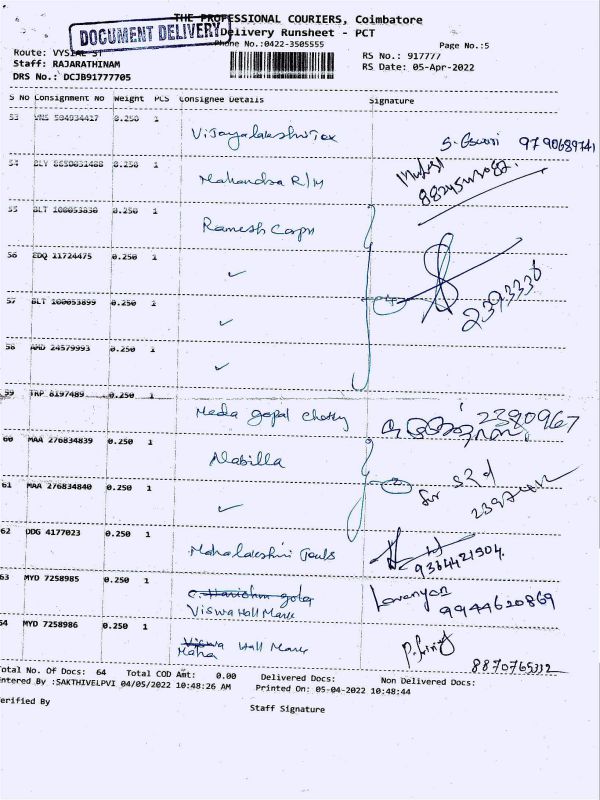 THE PROFESSIONAL COURIERS, Coimbatore
DOCUMENT DELIVERY
Delivery Runsheet - PCT
Phone No.:0422-3505555
Page No.:5
Route: VYSIAL ST
RS No.: 917777
Staff: RAJARATHINAM
RS Date: 05-Apr-2022
DRS No.: DCJB91777705
S No Consignment No Weight PCS Consignee Details Signature
53 VNS 504934417 0.250 1
Vijayalakshmi Tex S. Eswari 9790689741
54 0.250 1
Mahandra R/M
55 BLT 100053830 0.250 1
Ramesh Corpn
56 EDQ 11724475 0.250 1
✓ 4 2393330
57 BLT 100053899 0.250 1
✓
58 AMD 24579993 0.250 1
✓
59 TRP 8197489 0.250 1
gopal chetty 2380967
60 MAA 276834839 0.250 1
Nabilla
61 MAA 276834840 0.250 1
✓ 2
62 DDG 4177023 0.250 1
Mahalakshmi 9364421904.
63 MYD 7258985 0.250 1
Viswa Hall Mark Lavanya 9944620869
64 MYD 7258986 0.250 1
Viswa Hall Mark
Maha 8870765312
Total No. Of Docs: 64 Total COD Amt: 0.00 Delivered Docs: Non Delivered Docs:
Entered By :SAKTHIVELPVI 04/05/2022 10:48:26 AM Printed On: 05-04-2022 10:48:44
Verified By Staff Signature